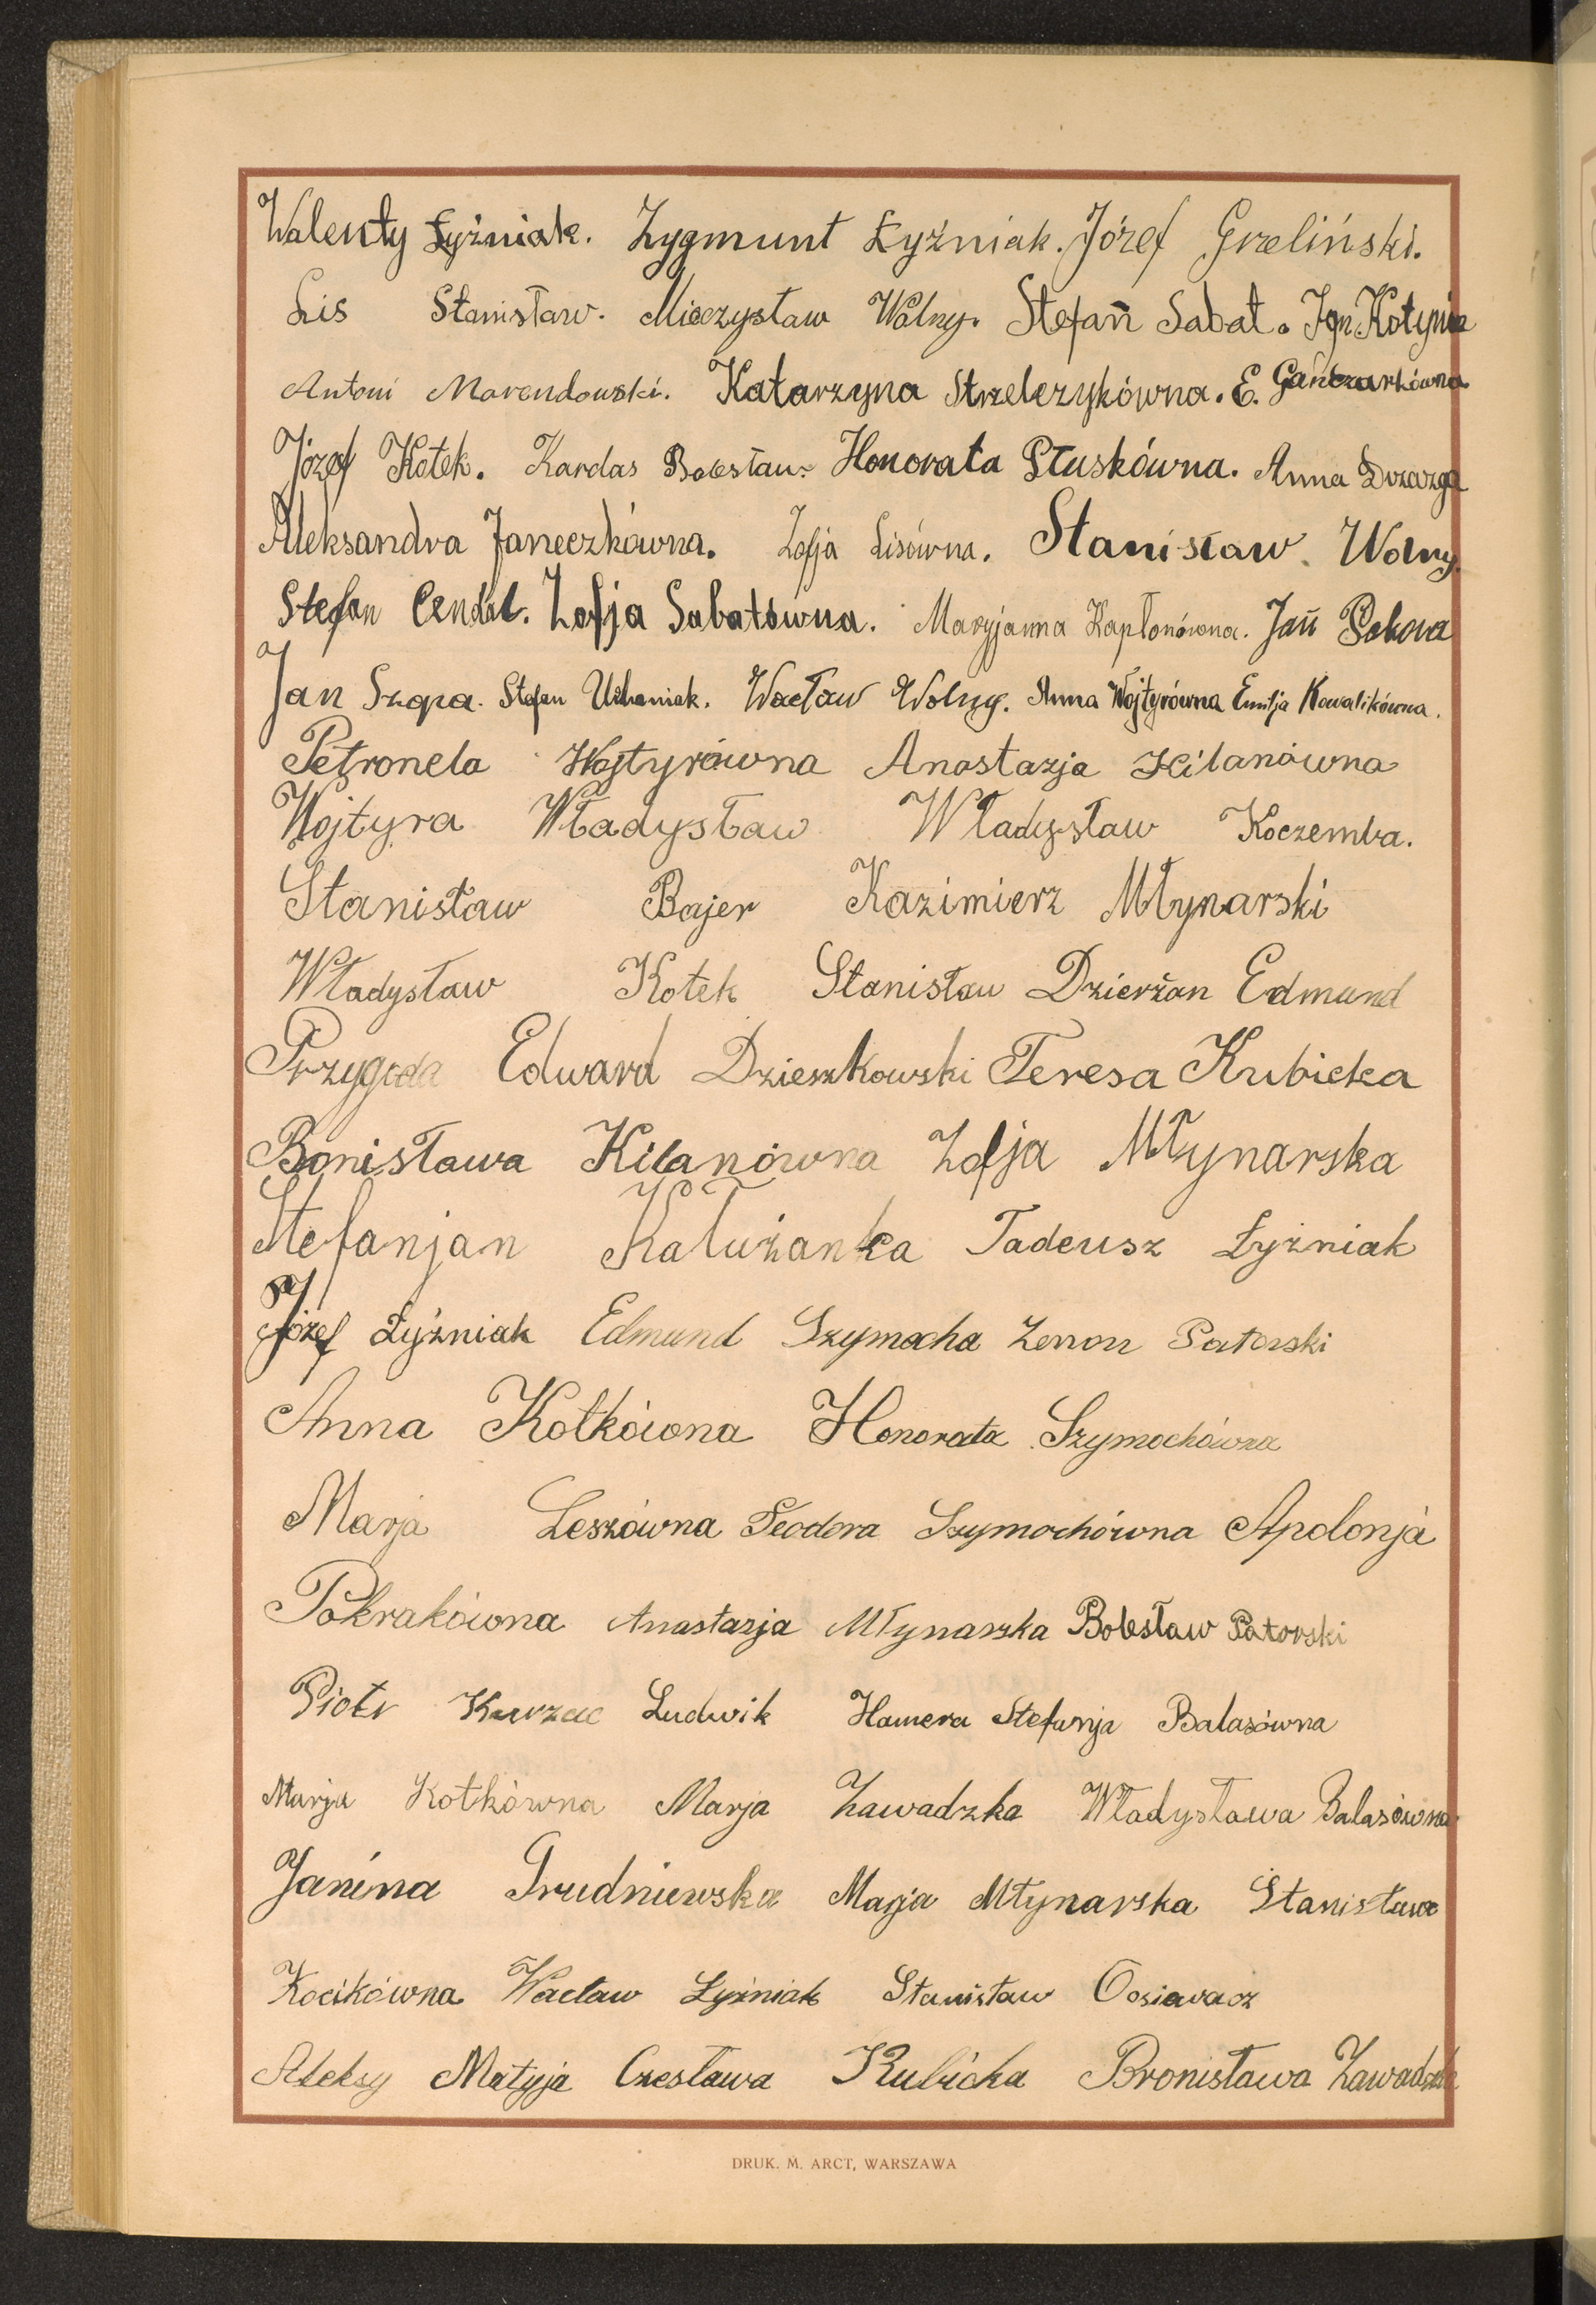 Walenty Łyźniak. Zygmunt Łyźniak. Józef Grzeliński.
Lis Stanisław. Mieczysław Wolny. Stefan Sabat. Ign. Kotynia
Antoni Marendowski. Katarzyna Strzelczykówna. E. Gańczarkówna
Józef Kotek. Kardas Bolesław. Honorata Płuskówna. Anna Drzazga
Aleksandra Janeczkówna. Zofja Lisówna. Stanisław Wolny.
Stefan Cendal. Zofja Sabatówna. Maryjanna Kapłonówna. Jan
Jan Szopa. Stefan Urbaniak. Wacław Wolny. Anna Wojtyrówna Emilja Kowalikówna.
Petronela Wojtyrówna Anastazja Kilanówna
Wojtyra Władysław Władysław Koczemba.
Stanisław Bajer Kazimierz Młynarski
Władysław Kotek Stanisław Dzierżan Edmund
Przygoda Edward Dzieszkowski Teresa Kubicka
Bonisława Kilanówna Zofja Młynarska
Stefanjan Kałużanka Tadeusz Łyźniak
Józef Łyźniak Edmund Szymocha Zenon Patorski
Anna Kotkówna Honorata Szymochówna
Marja Leszówna Teodora Szymochówna Apolonja
Pokrakówna Anastazja Młynarska Bolesław Patorski
Piotr Kurzac Ludwik Hamera Stefanja Balasówna
Marja Kotkówna Marja Zawadzka Władysława Balasówna
Janina Grudniewska Marja Młynarska Stanisława
Kocikówna Wacław Łyźniak Stanisław Oosiewacz
Aleksy Matyja Czesława Kubicka Bronisława Zawadzka
DRUK. M. ARCT, WARSZAWA